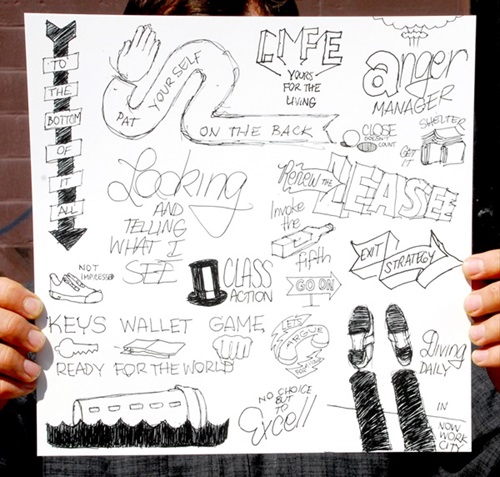 TO
THE
BOTTOM
OF
IT
ALL
PAT YOURSELF
ON THE BACK
LIFE
YOURS
FOR THE
LIVING
anger
MANAGER
CLOSE
DOESN'T
COUNT
GET
IT
SHELTER
Looking
AND
TELLING
WHAT I
SEE
Renew THE
LEASE
Invoke
the
fifth
EXIT STRATEGY
NOT
IMPRESSED
CLASS
ACTION
GO ON
KEYS WALLET GAME
READY FOR THE WORLD
LET'S
ARGUE
NO CHOICE
BUT
TO
Excell
Diving
DAILY
IN
NOW
WORK
CITY